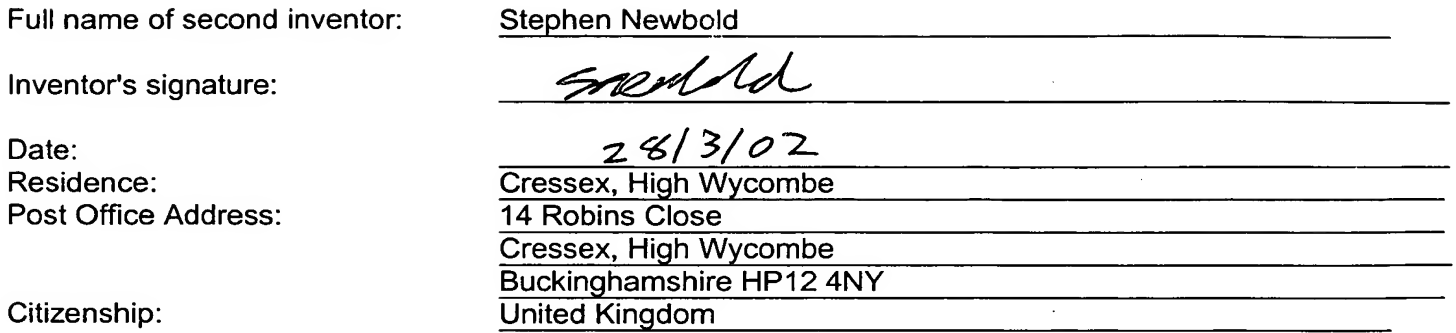 Full name of second inventor: Stephen Newbold
Inventor's signature: SNewbold
Date: 28/3/02
Residence: Cressex, High Wycombe
Post Office Address: 14 Robins Close
Cressex, High Wycombe
Buckinghamshire HP12 4NY
Citizenship: United Kingdom